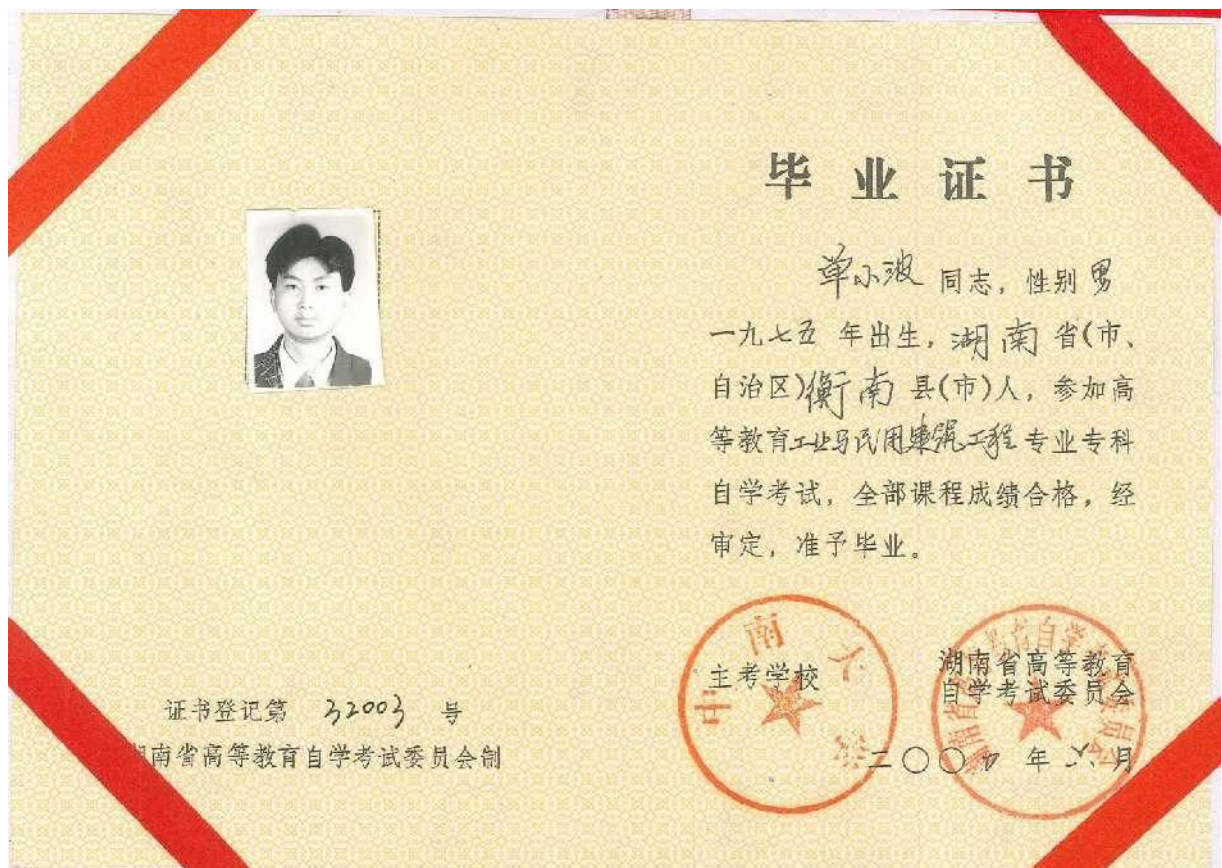 毕业证书
单小波 同志，性别 男
一九七五 年出生，湖南 省(市、
自治区)衡南 县(市)人，参加高
等教育工业与民用建筑工程 专业专科
自学考试，全部课程成绩合格，经
审定，准予毕业。
中南大学
主考学校
湖南省高等教育
自学考试委员会
湖南省高等教育自学考试委员会
二〇〇四 年 六 月
证书登记第 32003 号
湖南省高等教育自学考试委员会制